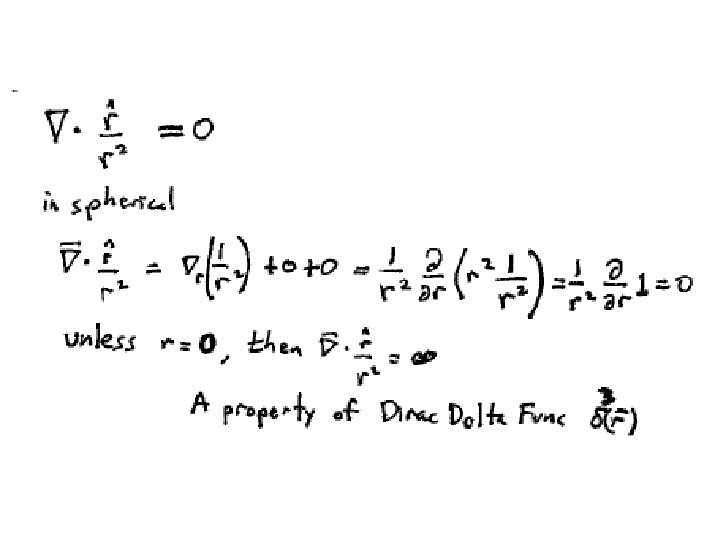 ∇· r̂/r² = 0
in spherical
∇⃗· r̂/r² = ∇ᵣ(1/r²) + 0 + 0 = 1/r² ∂/∂r (r² 1/r²) = 1/r² ∂/∂r 1 = 0
unless r = 0, then ∇⃗· r̂/r² = ∞
A property of Dirac Delta Func δ³(r⃗)